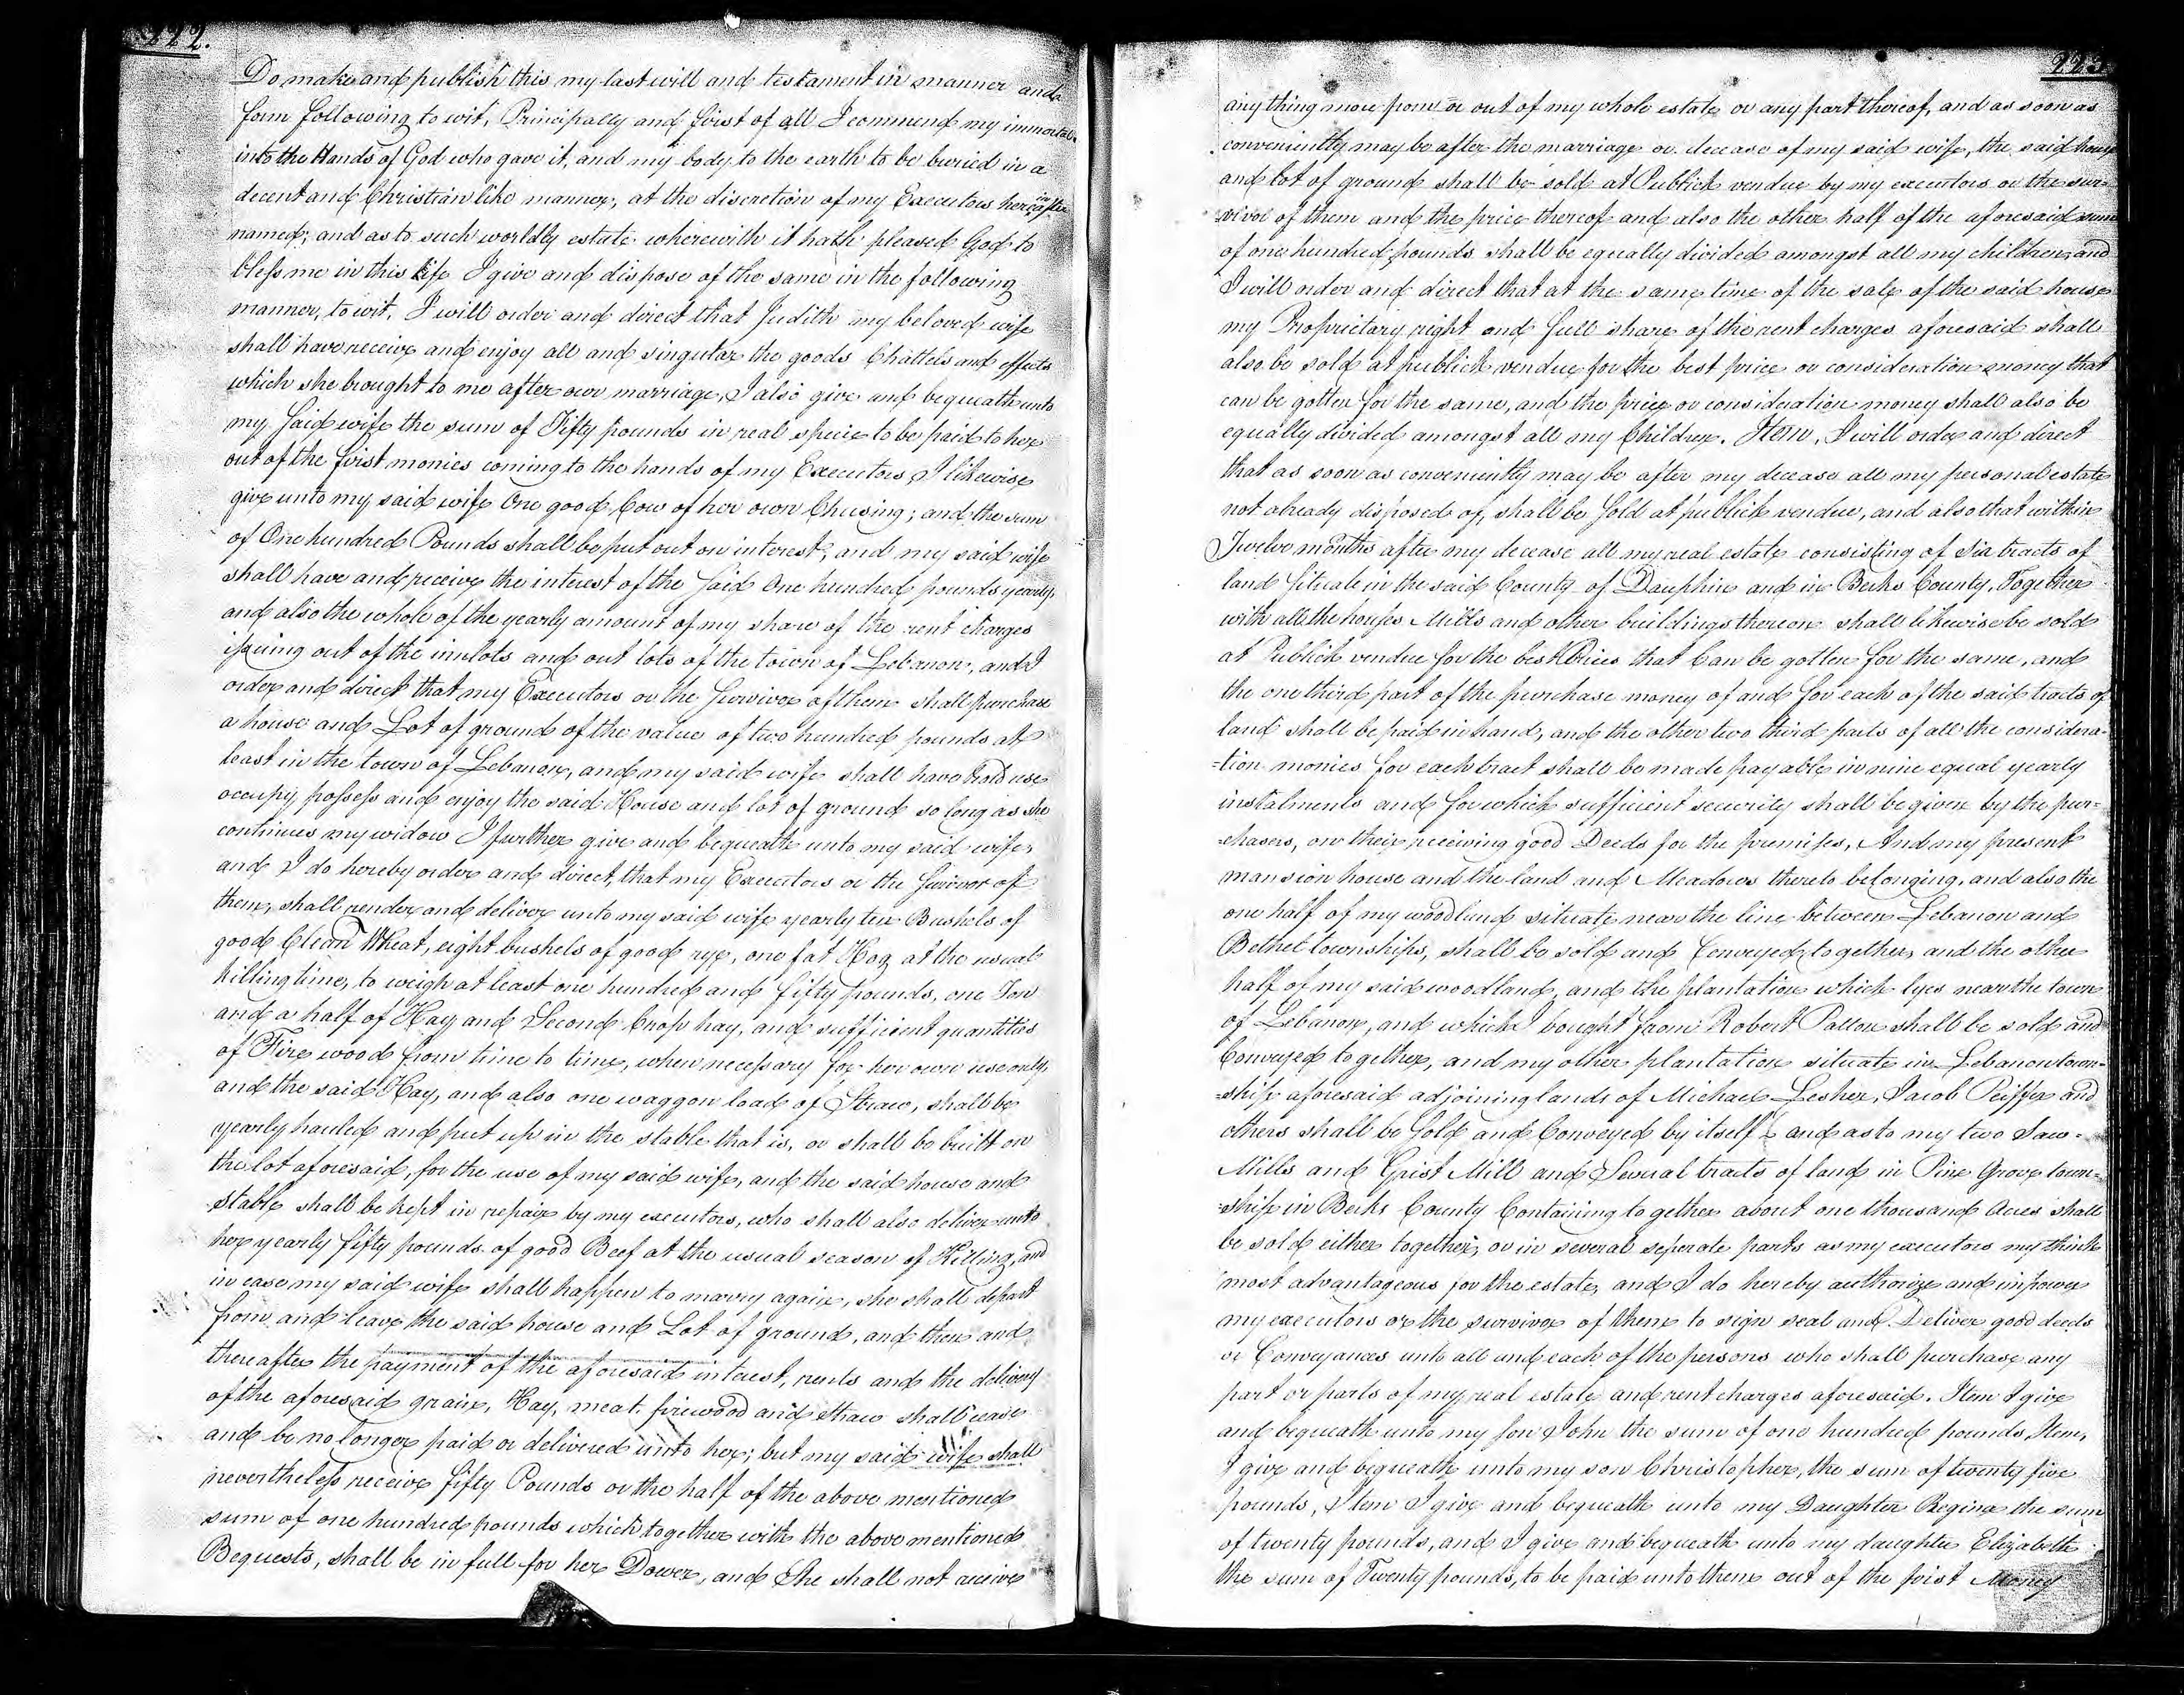 222.
Do make and publish this my last will and testament in manner and
form following to wit, Principally and first of all I commend my immortal
into the Hands of God who gave it, and my body to the earth to be buried in a
decent and Christian like manner, at the discretion of my Executors hereinafter
named; and as to such worldly estate wherewith it hath pleased God to
bless me in this Life I give and dispose of the same in the following
manner, to wit, I will order and direct that Judith my beloved wife
shall have receive and enjoy all and singular the goods Chattels and effects
which she brought to me after our marriage, I also give and bequeath unto
my said wife the sum of Fifty pounds in real specie to be paid to her
out of the first monies coming to the hands of my Executors I likewise
give unto my said wife One good Cow of her own Chusing; and the sum
of One hundred Pounds shall be put out on interest, and my said wife
shall have and receive the interest of the said One hundred pounds yearly,
and also the whole of the yearly amount of my share of the rent charges
issuing out of the inlots and out lots of the town of Lebanon, and I
order and direct that my Executors or the Survivor of them shall purchase
a house and Lot of ground of the value of two hundred pounds at
least in the town of Lebanon, and my said wife shall have hold use
occupy possess and enjoy the said House and lot of ground so long as she
continues my widow I further give and bequeath unto my said wife,
and I do hereby order and direct, that my Executors or the Survivor of
them, shall render and deliver unto my said wife yearly ten Bushels of
good Clean Wheat, eight bushels of good rye, one fat Hog at the usual
killing time, to weigh at least one hundred and fifty pounds, one Ton
and a half of Hay and Second Crop hay, and sufficient quantities
of Fire wood from time to time, when necessary for her own use only,
and the said Hay, and also one waggon load of Straw, shall be
yearly hauled and put up in the stable that is, or shall be built on
the lot aforesaid, for the use of my said wife, and the said house and
stable shall be kept in repair by my executors, who shall also deliver unto
her yearly fifty pounds of good Beef at the usual season of Killing, and
in case my said wife shall happen to marry again, she shall depart
from and leave the said house and Lot of ground, and then and
thereafter the payment of the aforesaid interest, rents and the delivery
of the aforesaid grain, Hay, meat, firewood and straw shall cease
and be no longer paid or delivered unto her; but my said wife shall
nevertheless receive fifty Pounds or the half of the above mentioned
sum of one hundred pounds which together with the above mentioned
Bequests, shall be in full for her Dower, and She shall not receive
223.
any thing more from or out of my whole estate or any part thereof, and as soon as
conveniently may be after the marriage or decease of my said wife, the said house
and lot of ground shall be sold at Publick vendue by my executors or the sur=
=vivor of them and the price thereof and also the other half of the aforesaid sum
of one hundred pounds shall be equally divided amongst all my children, and
I will order and direct that at the same time of the sale of the said house
my Proprietary right and full share of the rent charges aforesaid shall
also be sold at publick vendue for the best price or consideration money that
can be gotten for the same, and the price or consideration money shall also be
equally divided amongst all my Children. Item, I will order and direct
that as soon as conveniently may be after my decease all my personal estate
not already disposed of, shall be sold at publick vendue, and also that within
Twelve months after my decease all my real estate consisting of six tracts of
land situate in the said County of Dauphin and in Berks County, Together
with all the houses Mills and other buildings thereon shall likewise be sold
at Publick vendue for the best Prices that Can be gotten for the same, and
the one third part of the purchase money of and for each of the said tracts of
land shall be paid in hand, and the other two third parts of all the considera=
=tion monies for each tract shall be made payable in nine equal yearly
instalments and for which sufficient security shall be given by the pur=
=chasers, on their receiving good Deeds for the premises, And my present
mansion house and the land and Meadows thereto belonging, and also the
one half of my woodland situate near the line between Lebanon and
Bethel townships, shall be sold and Conveyed together, and the other
half of my said woodland, and the plantation which lyes near the town
of Lebanon, and which I bought from Robert Patton shall be sold and
Conveyed together, and my other plantation situate in Lebanon town=
=ship aforesaid adjoining lands of Michael Lesher, Jacob Peiffer and
others shall be sold and Conveyed by itself, and as to my two Saw=
Mills and Grist Mill and Several tracts of land in Pine Grove town=
=ship in Berks County Containing together about one thousand Acres shall
be sold either together, or in several seperate parts as my executors my think
most advantageous for the estate, and I do hereby authorize and impower
my executors or the survivor of them to sign seal and Deliver good deeds
or Conveyances unto all and each of the persons who shall purchase any
part or parts of my real estate and rent charges aforesaid. Item I give
and bequeath unto my son John the sum of one hundred pounds, Item,
I give and bequeath unto my son Christopher, the sum of twenty five
pounds, Item I give and bequeath unto my Daughter Regina the sum
of twenty pounds, and I give and bequeath unto my daughter Elizabeth
the sum of Twenty pounds, to be paid unto them out of the first Money